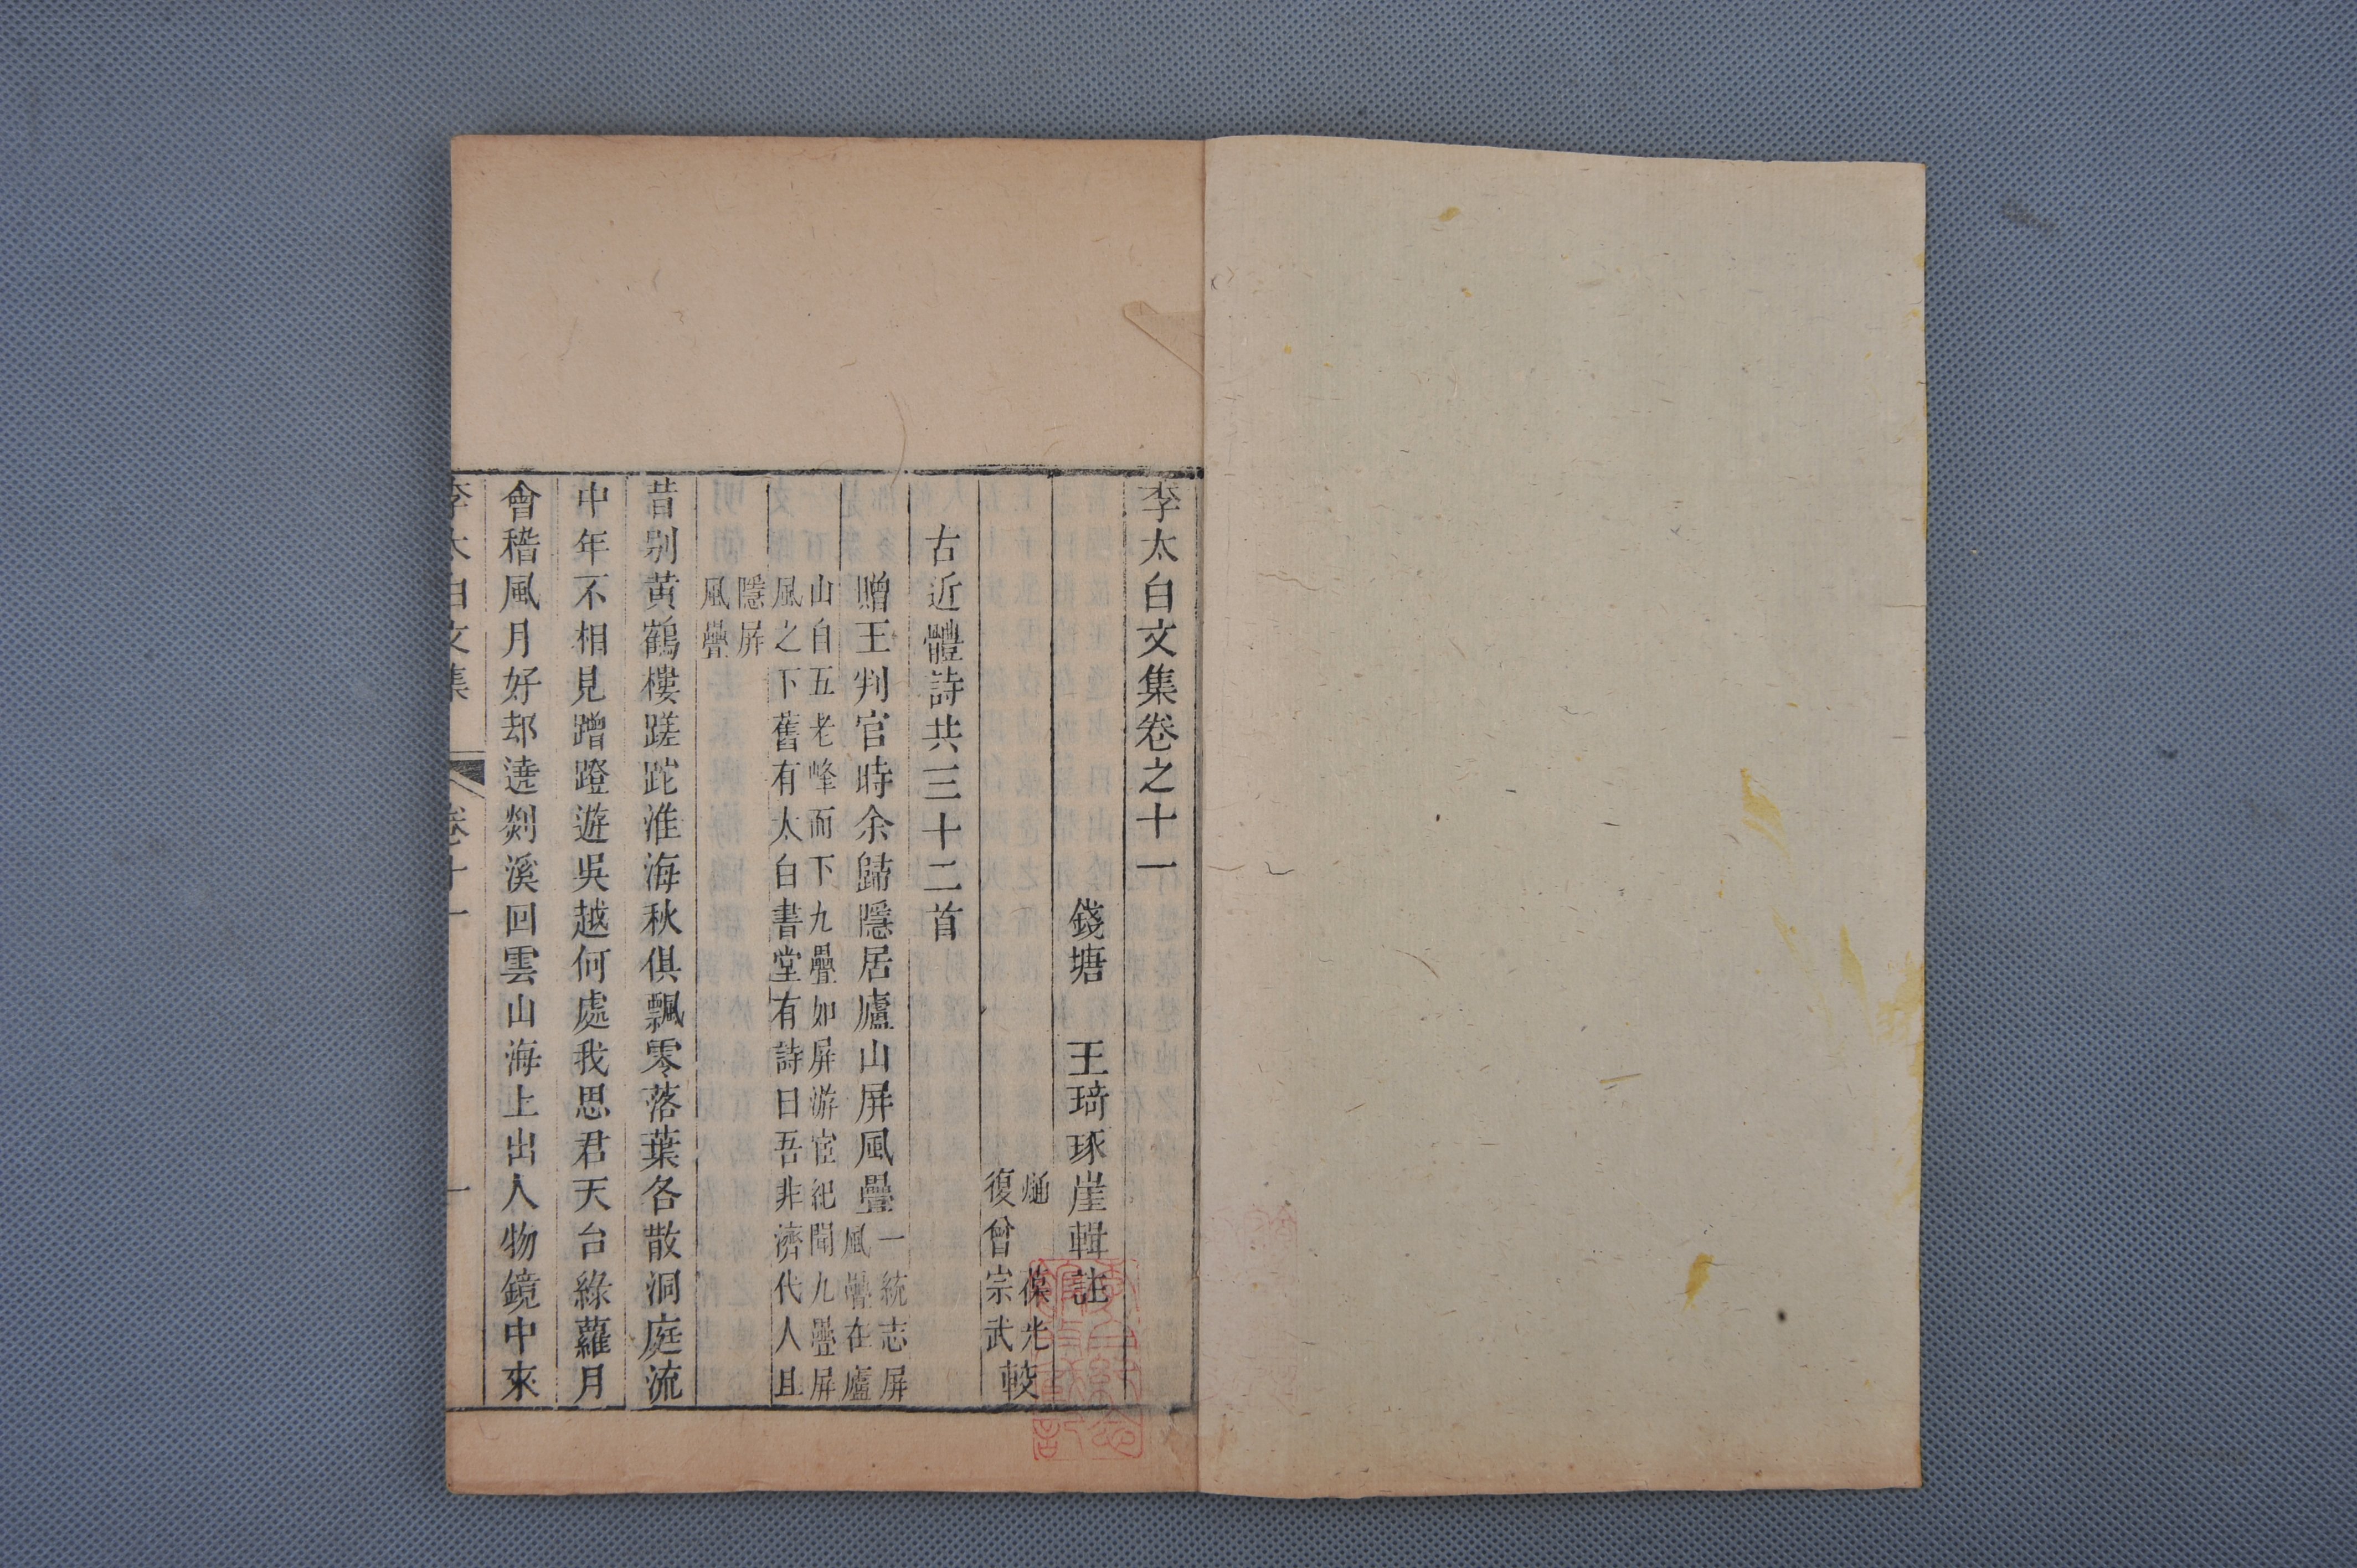 李太白文集卷之十一
錢塘 王琦琢崖輯註
葆光
復曾宗武
較
古近體詩共三十二首
贈王判官時余歸隱居廬山屏風疊
一統志屏
風疊在廬
山自五老峰而下九疊如屏游宦紀聞九疊屏
風之下舊有太白書堂有詩曰吾非濟代人且
隱屏
風疊
昔别黄鶴樓蹉跎淮海秋俱飄零落葉各散洞庭流
中年不相見蹭蹬遊吳越何處我思君天台綠蘿月
會稽風月好却遶剡溪回雲山海上出人物鏡中來
李太白文集 卷十一 一